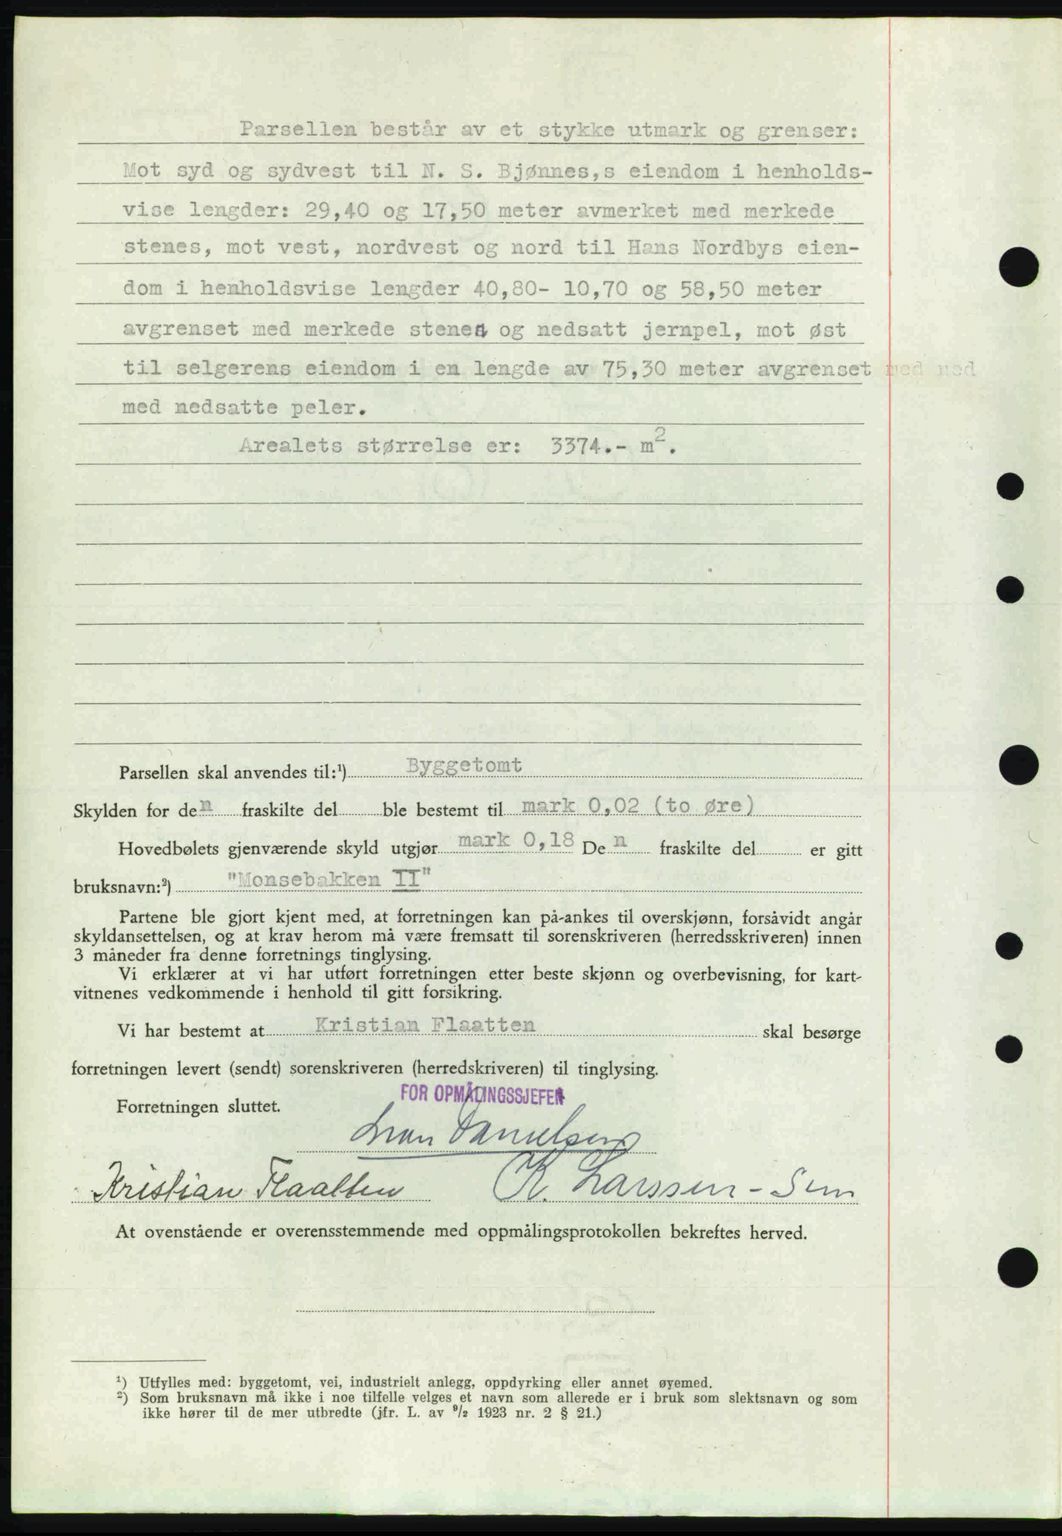 Parsellen består av et stykke utmark og grenser:
Mot syd og sydvest til N. S. Bjønnes,s eiendom i henholds-
vise lengder: 29,40 og 17,50 meter avmerket med merkede
stenes, mot vest, nordvest og nord til Hans Nordbys eien-
dom i henholdsvise lengder 40,80- 10,70 og 58,50 meter
avgrenset med merkede stener og nedsatt jernpel, mot øst
til selgerens eiendom i en lengde av 75,30 meter avgrenset med med
med nedsatte peler.
Arealets størrelse er: 3374.- m2.
Parsellen skal anvendes til:¹) Byggetomt
Skylden for den fraskilte del ble bestemt til mark 0,02 (to øre)
Hovedbølets gjenværende skyld utgjør mark 0,18 Den fraskilte del er gitt
bruksnavn:²) "Monsebakken II"
Partene ble gjort kjent med, at forretningen kan på-ankes til overskjønn, forsåvidt angår
skyldansettelsen, og at krav herom må være fremsatt til sorenskriveren (herredsskriveren) innen
3 måneder fra denne forretnings tinglysing.
Vi erklærer at vi har utført forretningen etter beste skjønn og overbevisning, for kart-
vitnenes vedkommende i henhold til gitt forsikring.
Vi har bestemt at Kristian Flaatten skal besørge
forretningen levert (sendt) sorenskriveren (herredskriveren) til tinglysing.
FOR OPMÅLINGSSJEFEN
Forretningen sluttet.
Danielsen
Kristian Flaatten K. Larssen - Sem
At ovenstående er overensstemmende med oppmålingsprotokollen bekreftes herved.
¹) Utfylles med: byggetomt, vei, industrielt anlegg, oppdyrking eller annet øyemed.
²) Som bruksnavn må ikke i noe tilfelle velges et navn som allerede er i bruk som slektsnavn og som
ikke hører til de mer utbredte (jfr. L. av 9/2 1923 nr. 2 § 21.)